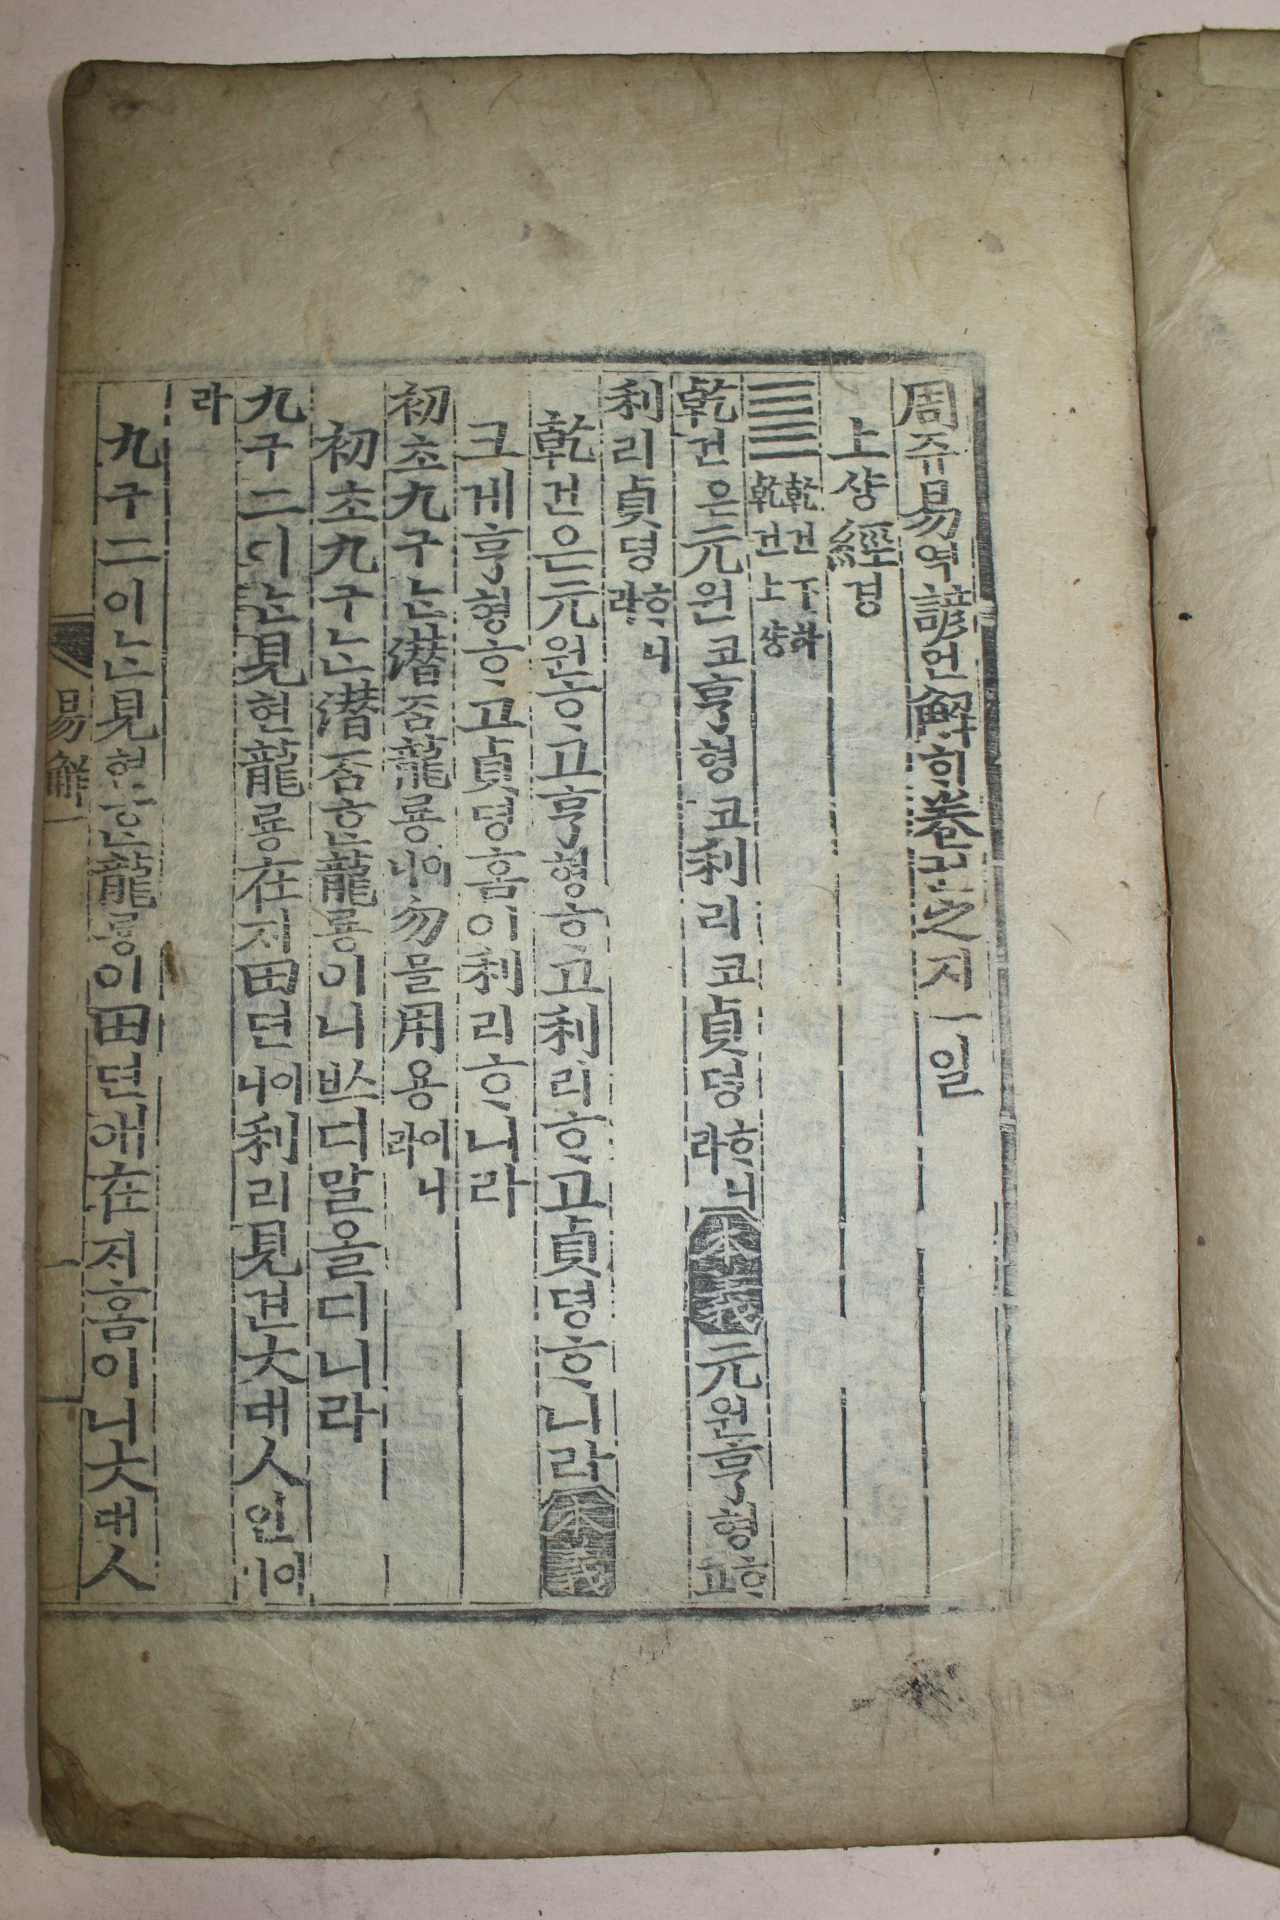 周쥬易역諺언解ᄒᆡ卷권之지一일
上샹經경
䷀ 乾건下하 乾건上샹
乾건은元원코亨형코利리코貞뎡ᄒᆞ니라 本義 元원亨형ᄒᆞ고
利리貞뎡ᄒᆞ니라
乾건은元원ᄒᆞ고亨형ᄒᆞ고利리ᄒᆞ고貞뎡ᄒᆞ니라 本義
크게亨형ᄒᆞ고貞뎡홈이利리ᄒᆞ니라
初초九구ᄂᆞᆫ潜ᄌᆞᆷ龍룡이니勿믈用용이니라
初초九구ᄂᆞᆫ潜ᄌᆞᆷᄒᆞᆫ龍룡이니ᄡᅳ디말을디니라
九구二이ᄂᆞᆫ見현龍룡在ᄌᆡ田뎐이니利리見견大대人인이니
라
九구二이ᄂᆞᆫ見현ᄒᆞᆫ龍룡이田뎐애在ᄌᆡ홈이니大대人
易解一